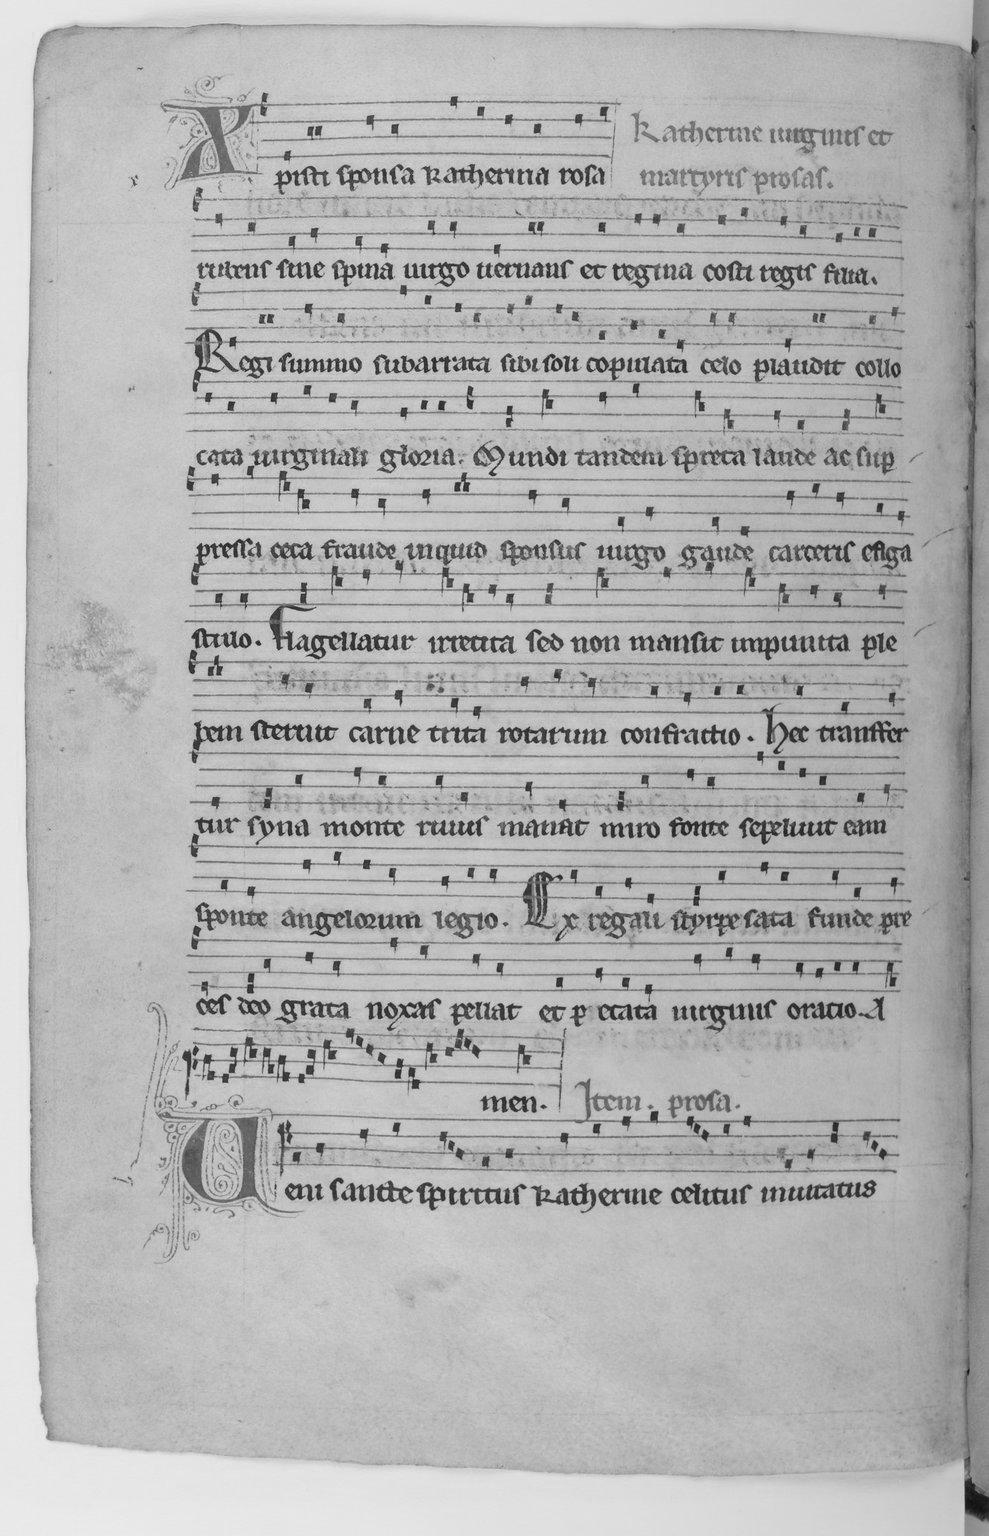 Katherine uirginis et
Xpisti sponsa katherina rosa martyris prosas.
rubens sine spina uirgo uernans et regina costi regis filia.
Regi summo subarrata sibi soli copulata celo plaudit collo
cata uirginali gloria. Mundi tandem spreta laude ac sup
pressa ceca fraude inquid sponsus uirgo gaude carceris ergastulo
stulo. Flagellatur irretita sed non mansit impunita ple
bem sternit carne trita rotarum confractio. Hec transfer
tur syna monte riuus manat miro fonte sepeliuit eam
sponte angelorum legio. Ex regali styrpe sata funde pre
ces deo grata noxas pellat et peccata uirginis oratio. A
men. Item. prosa.
Ueni sancte spiritus katherine celitus inuitatus